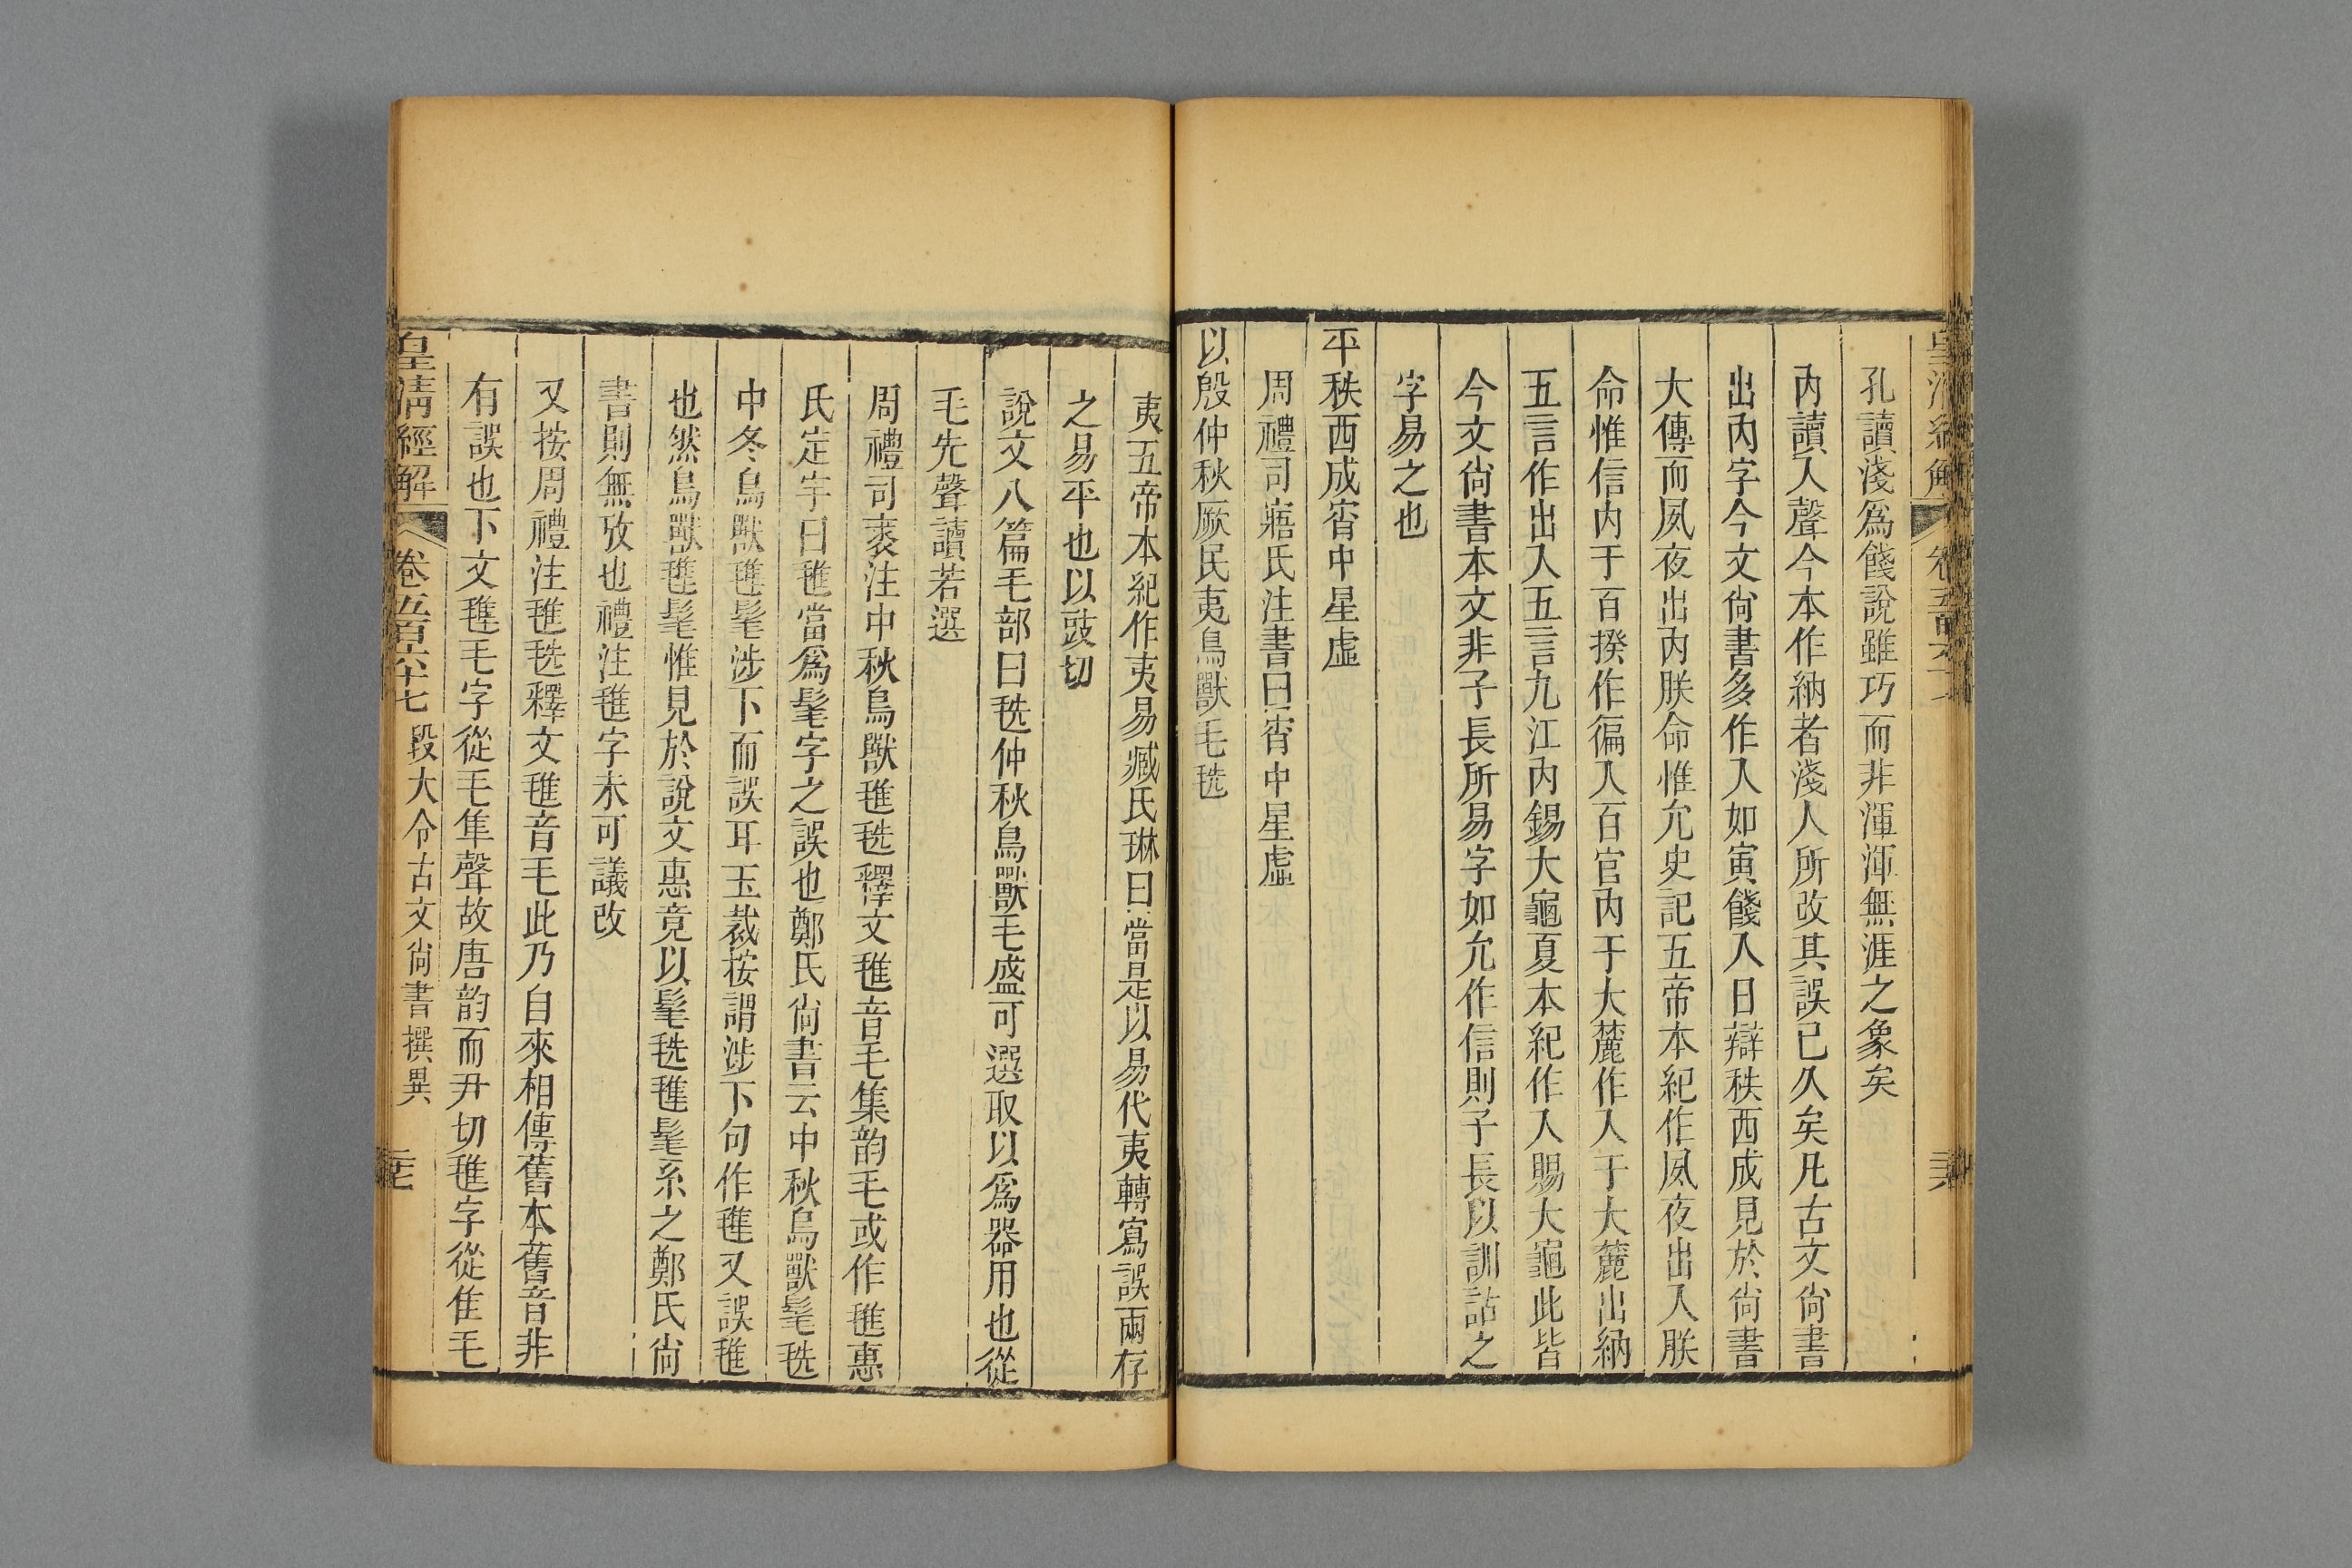 皇清經解 卷五百六十七
孔讀淺爲餞說雖巧而非渾渾無涯之象矣
內讀入聲今本作納者淺人所改其誤已久矣凡古文尙書
出內字今文尙書多作入如寅餞入日辯秩西成見於尙書
大傳而夙夜出內朕命惟允史記五帝本紀作夙夜出入朕
命惟信內于百揆作徧入百官內于大麓作入于大麓出納
五言作出入五言九江內錫大龜夏本紀作入賜大龜此皆
今文尙書本文非子長所易字如允作信則子長以訓詁之
字易之也
平秩西成宵中星虛
周禮司寤氏注書曰宵中星虛
以殷仲秋厥民夷鳥獸毛毨
夷五帝本紀作夷易臧氏琳曰當是以易代夷轉寫誤兩存
之易平也以豉切
說文八篇毛部曰毨仲秋鳥獸毛盛可選取以爲器用也從
毛先聲讀若選
周禮司裘注中秋鳥獸毴毨釋文毴音毛集韵毛或作毴惠
氏定宇曰毴當爲髦字之誤也鄭氏尙書云中秋鳥獸髦毨
中冬鳥獸毴髦涉下而誤耳玉裁按謂涉下句作毴又誤毴
也然鳥獸毴髦惟見於說文惠竟以髦毨毴髦系之鄭氏尙
書則無攷也禮注毴字未可議改
又按周禮注毴毨釋文毴音毛此乃自來相傳舊本舊音非
有誤也下文毴毛字從毛隼聲故唐韵而尹切毴字從隹毛
皇清經解 卷五百六十七 段大令古文尙書撰異 三七